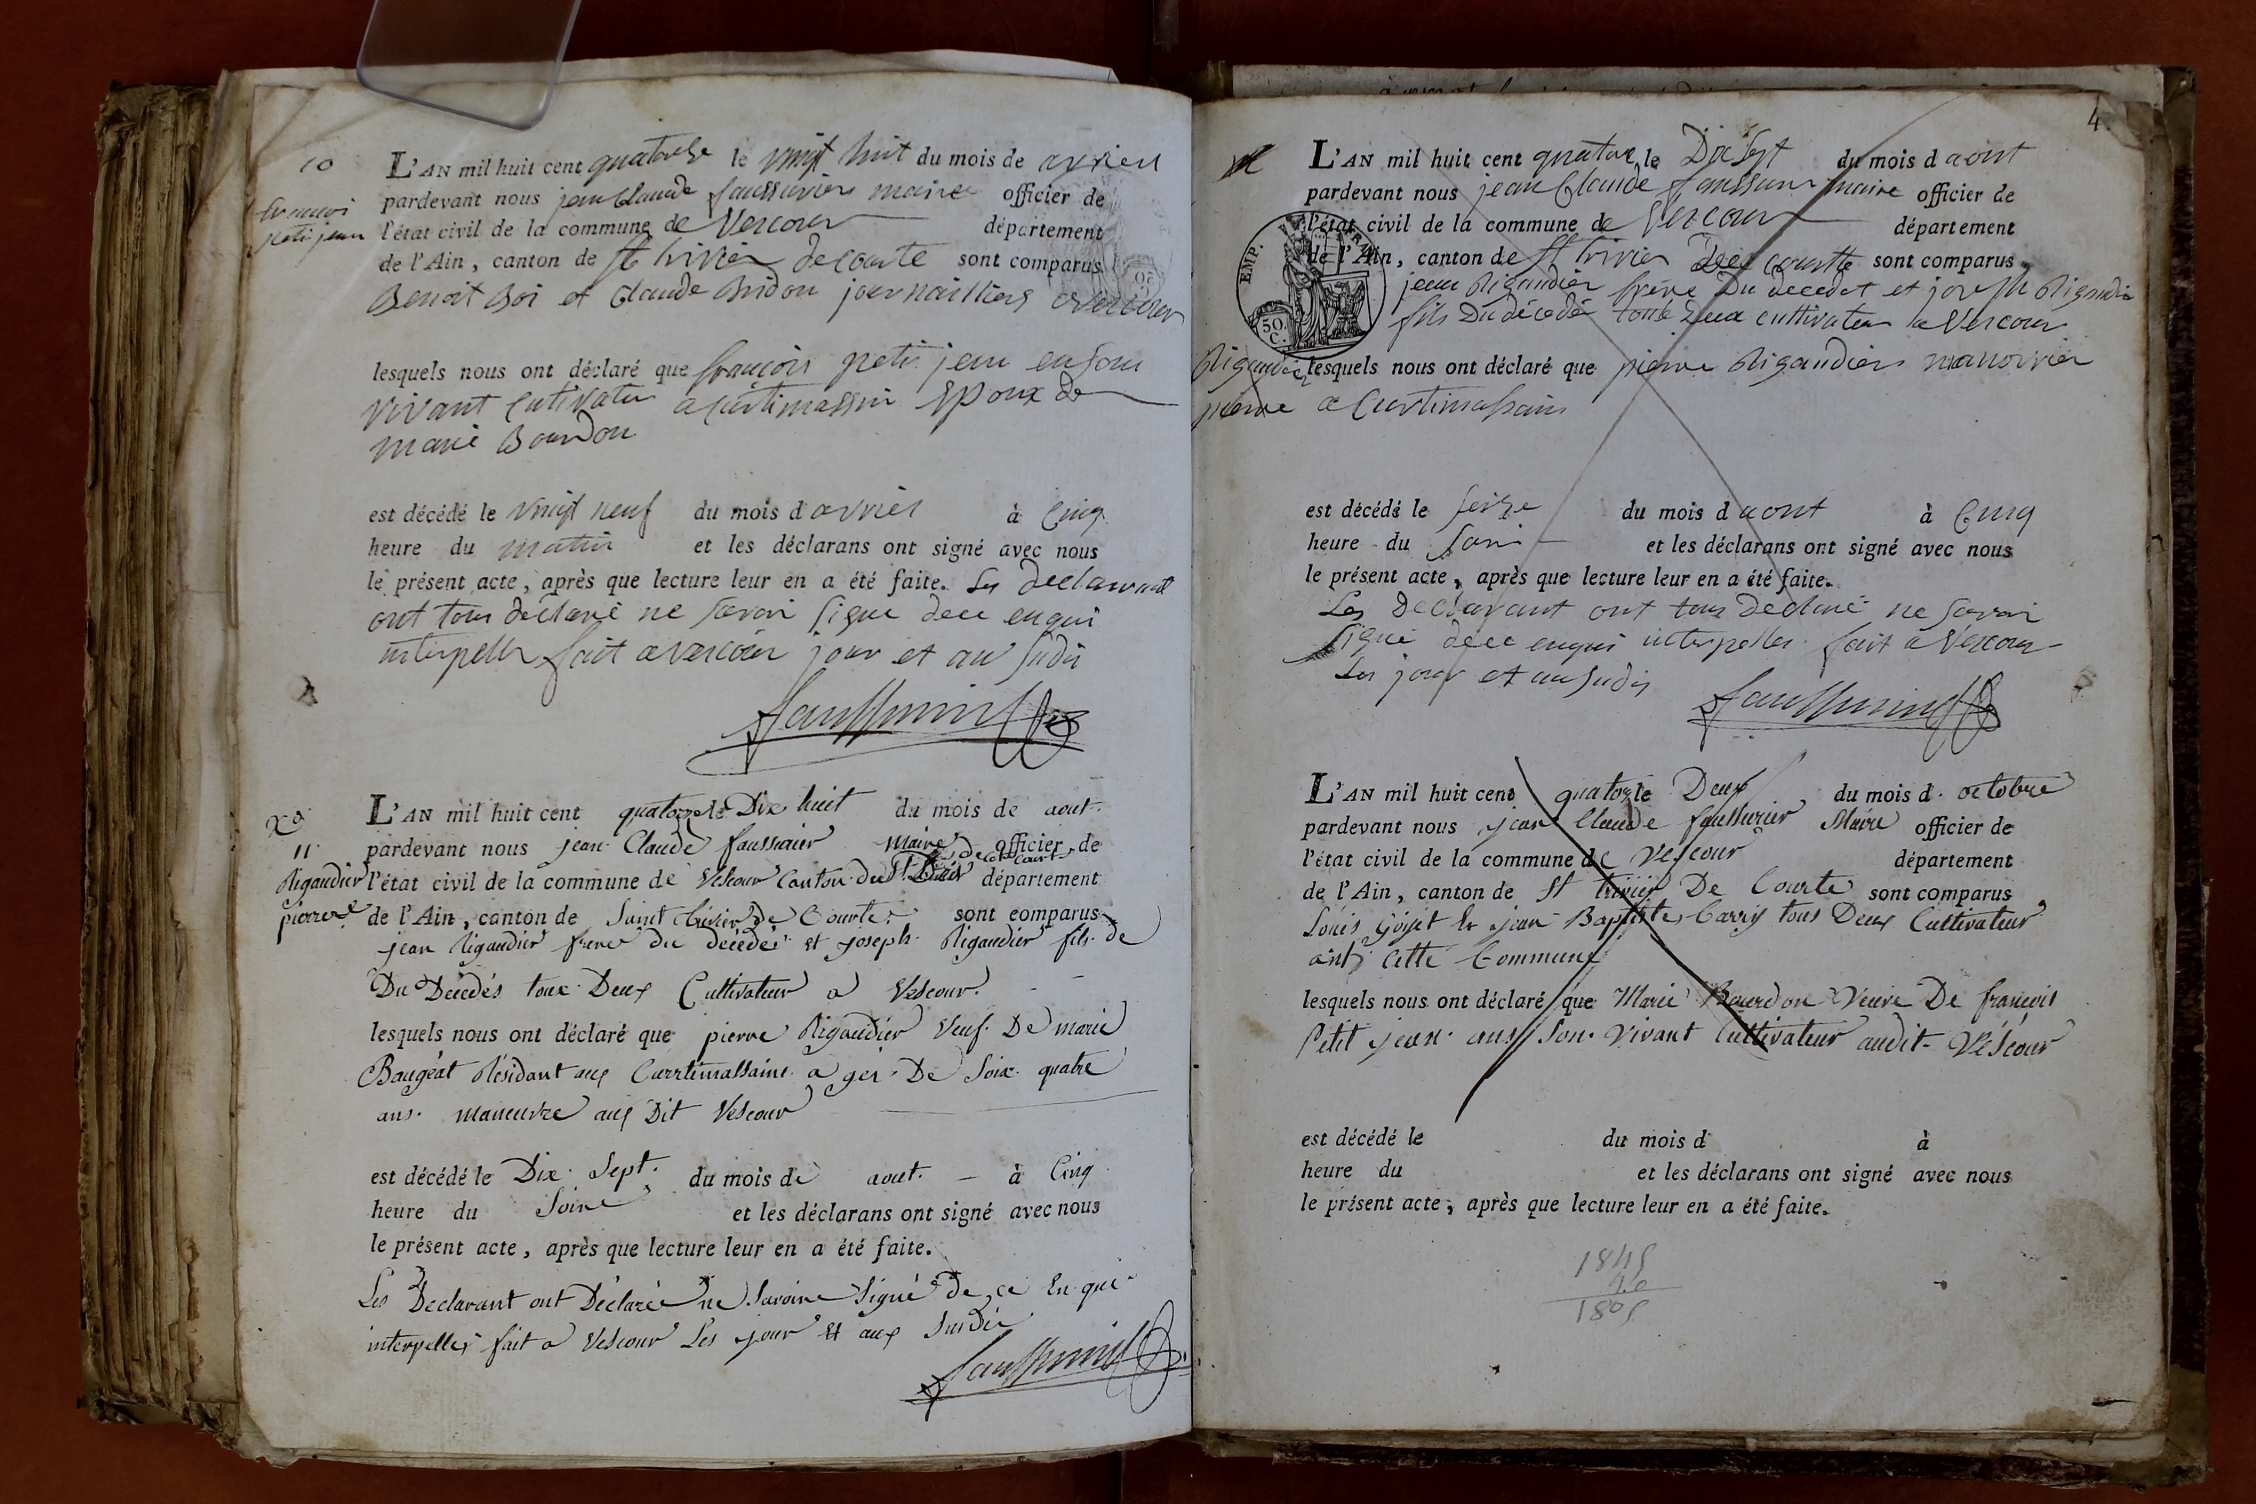 10
françoi
petit jean
L'AN mil huit cent quatorze le vingt huit du mois de avriel
pardevant nous jean Claude faussurier maire officier de
l'état civil de la commune de Vercour département
de l'Ain, canton de St trivier de courte sont comparus
Benoit Boi et Claude Bridon journailliers a vercour
lesquels nous ont déclaré que françois petit jean en sons
vivant Cultivateur a Curtimassin Epoux de
marie Bourdon
est décédé le vingt neuf du mois d avriel à Cinq
heure du matin et les déclarans ont signé avec nous
le présent acte, après que lecture leur en a été faite. Les declarant
ont tous déclaré ne savoir signe dece enqui
interpelle fait a vercour jour et an sudis
11
Rigaudier
pierre
L'AN mil huit cent quatorze le Dix huit du mois de aout.
pardevant nous jean Claude faussurier Maire officier de
l'état civil de la commune de Vescour Canton du St département
de l'Ain, canton de Saint trivier de Courte sont comparus
jean Rigaudier frere du decédé et joseph Rigaudier fils de
Du Décédés toux Deux Cultivateur a Vescour.
lesquels nous ont déclaré que pierre Rigaudier veuf De marie
Baugeat Résidant aux Currtimassaint a gér De Soix quatre
ans. maneuvre aux Dit Vescour
est décédé le Dix Sept. du mois de aout. à Cinq
heure du Soire et les déclarans ont signé avec nous
le présent acte, après que lecture leur en a été faite.
Les Declarant ont Déclaréé ne Savoire Signé de ce En qui
interpellé fait a Vescour Les jour et aux Susdit
4
L'AN mil huit cent quatorze le Dix sept du mois d aout
pardevant nous jean Claude faussurier maire officier de
l'état civil de la commune de Vercour département
de l'Ain, canton de St trivier Dee courtte sont comparus
EMP. FRA
50 C.
jean Rigaudier frere Du decedet et joseph Rigaudier
fils Du décedé touts deux cultivateur a Vercour
Rigaudier
pierre
lesquels nous ont déclaré que pierre Rigaudier manovrier
a Curtimassain
est décédé le seize du mois d aout à Cinq
heure du soir et les déclarans ont signé avec nous
le présent acte, après que lecture leur en a été faite.
Les Declarant ont tous declaré ne savoir
signé dece enqui interpeller fait a Vercour
Les jour et an sudis
L'AN mil huit cent quatorze le Deux du mois d octobre
pardevant nous jean Claude faussurier Maire officier de
l'état civil de la commune de Vescour département
de l'Ain, canton de St trivier De Courte sont comparus
Louis Goijet Et jean Baptiste Carry tous Deux Cultivateur
cette Commune
lesquels nous ont déclaré que Marie Bourdon Veuve De francois
Petit jean aus Son vivant Cultivateur audit Véscour
est décédé le du mois d à
heure du et les déclarans ont signé avec nous
le présent acte, après que lecture leur en a été faite.
1845
40
1805